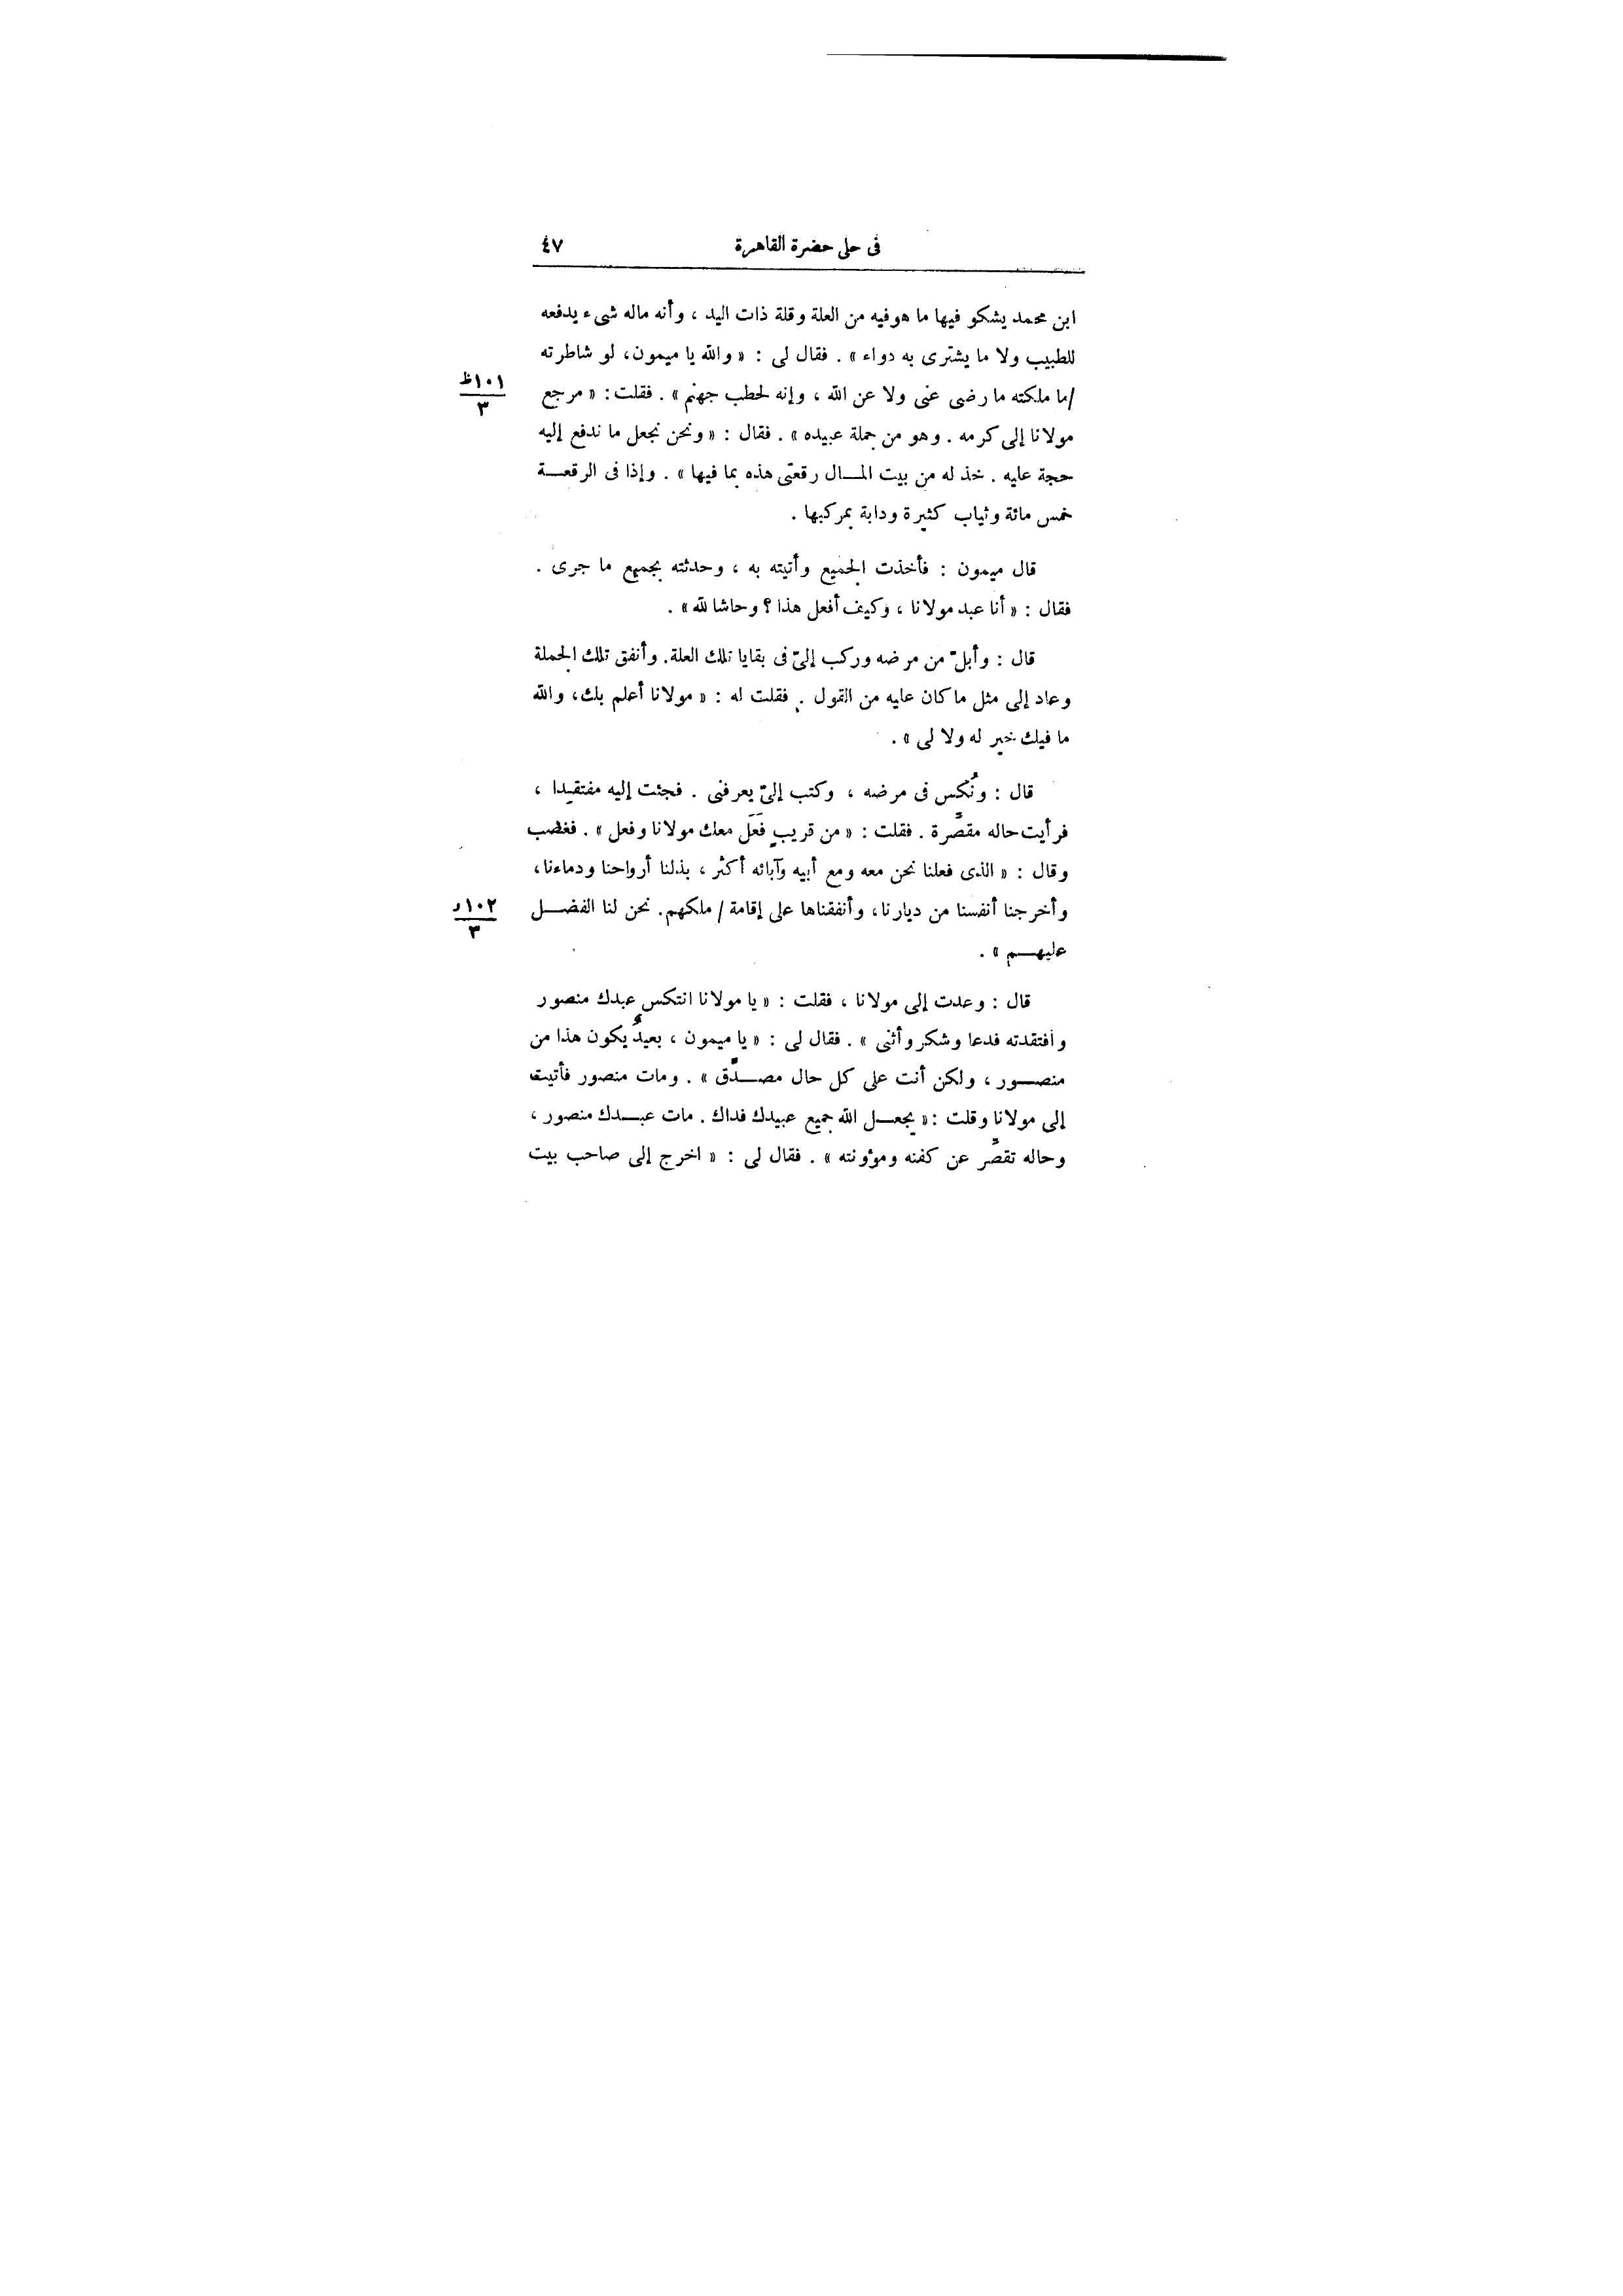 فى حلى حضرة القاهرة ٤٧
ابن محمد يشكو فيها ما هو فيه من العلة وقلة ذات اليد ، وأنه ماله شىء يدفعه
للطبيب ولا ما يشترى به دواء » . فقال لى : « والله يا ميمون، لو شاطرته
١٠١ظ
٣
/ما ملكته ما رضى عنى ولا عن الله ، وإنه لحطب جهنم » . فقلت : « مرجع
مولانا إلى كرمه . وهو من جملة عبيده » . فقال : « ونحن نجعل ما ندفع إليه
حجة عليه . خذ له من بيت المـال رقعتى هذه بما فيها » . وإذا فى الرقعـة
خمس مائة وثياب كثيرة ودابة بمركبها .
قال ميمون : فأخذت الجميع وأتيته به ، وحدثته بجميع ما جرى .
فقال : « أنا عبد مولانا ، وكيف أفعل هذا ؟ وحاشا لله » .
قال : وأبلّ من مرضه وركب إلىّ فى بقايا تلك العلة. وأنفق تلك الجملة
وعاد إلى مثل ما كان عليه من القول . فقلت له : « مولانا أعلم بك، والله
ما فيك خير له ولا لى » .
قال : ونُكس فى مرضه ، وكتب إلىّ يعرفنى . فجئت إليه مفتقدا ،
فرأيت حاله مقصّرة . فقلت : « من قريبٍ فَعَل معك مولانا وفعل » . فغضب
وقال : « الذى فعلنا نحن معه ومع أبيه وآبائه أكثر ، بذلنا أرواحنا ودماءنا،
١٠٢و
٣
وأخرجنا أنفسنا من ديارنا، وأنفقناها على إقامة / ملكهم. نحن لنا الفضـل
عليهـم » .
قال : وعدت إلى مولانا ، فقلت : « يا مولانا انتكس عبدك منصور
وافتقدته فدعا وشكر وأثنى » . فقال لى : « يا ميمون ، بعيدٌ يكون هذا من
منصـور ، ولكن أنت على كل حال مصـدّق » . ومات منصور فأتيت
إلى مولانا وقلت : « يجعـل الله جميع عبيدك فداك . مات عبـدك منصور ،
وحاله تقصّر عن كفنه ومؤونته » . فقال لى : « اخرج إلى صاحب بيت